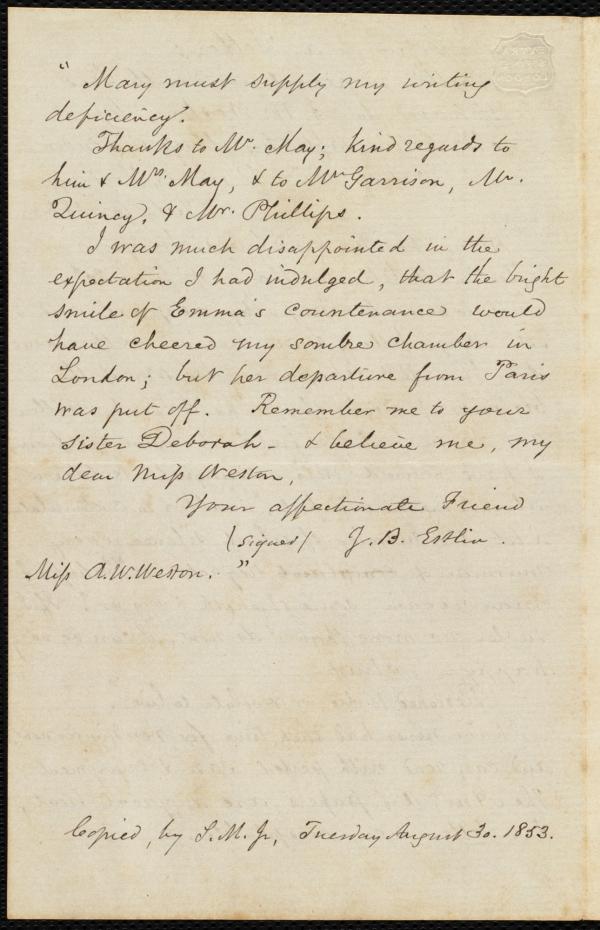 " Mary must supply my writing
deficiency.
Thanks to Mr. May; kind regards to
him & Mrs. May, & to Mr Garrison, Mr.
Quincy, & Mr. Phillips.
I was much disappointed in the
expectation I had indulged, that the bright
smile of Emma's countenance would
have cheered my sombre chamber in
London; but her departure from Paris
was put off. Remember me to your
sister Deborah - & believe me, my
dear Miss Weston,
Your affectionate Friend
(signed) J. B. Estlin.
Miss A. W. Weston. "
Copied, by S. M. Jr, Tuesday August 30. 1853.